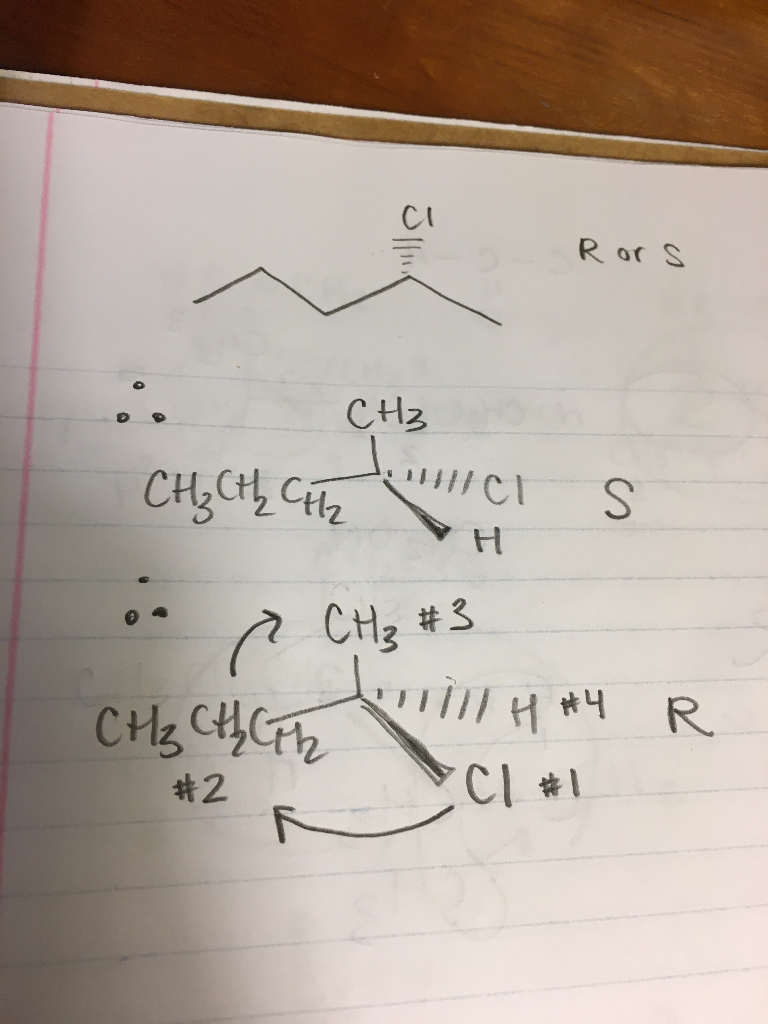 Cl
R or S
CH3
CH3CH2CH2 Cl S
H
CH3 #3
CH3CH2CH2 H #4 R
#2 Cl #1